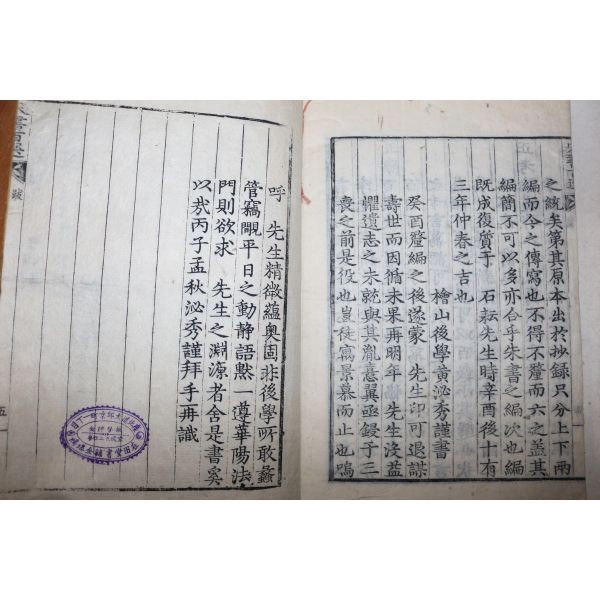 之緖矣第其原本出於抄錄只分上下兩
編而今之傳寫也不得不釐而六之蓋其
編簡不可以多亦合乎朱書之編次也編
既成復質于　石耘先生時辛酉後十有
三年仲春之吉也
檜山後學黃泌秀謹書
癸酉釐編之後遂蒙　先生印可退謀
壽世而因循未果再明年　先生沒益
懼遺志之未就與其胤憙翼亟鋟于三
喪之前是役也豈徒寓景慕而止也嗚
呼　先生精微蘊奧固非後學所敢蠡
管竊覵平日之動靜語默一遵華陽法
門則欲求　先生之淵源者舍是書奚
以㢤丙子孟秋泌秀謹拜手再識
跋
五